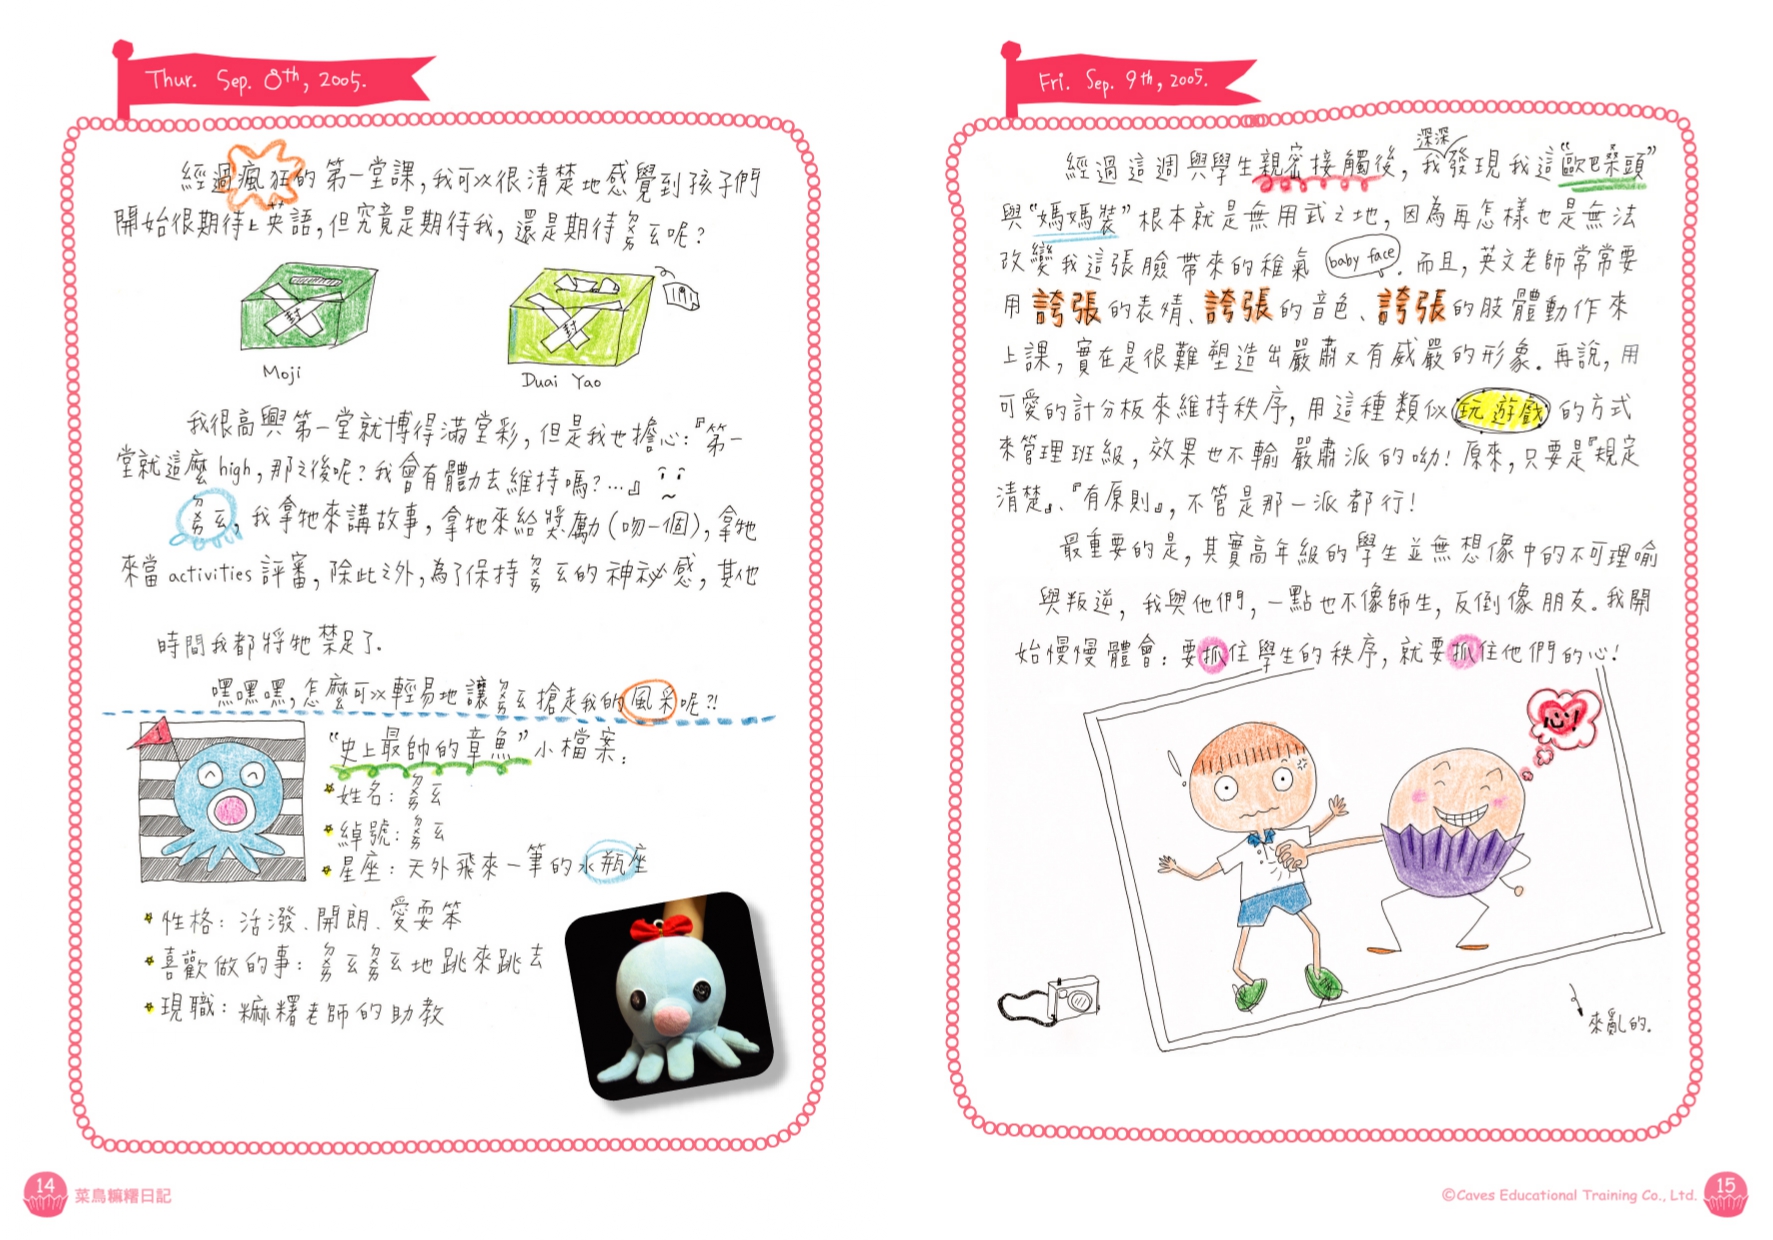 Thur. Sep. 8th, 2005.
經過瘋狂的第一堂課,我可以很清楚地感覺到孩子們
開始很期待上英語,但究竟是期待我,還是期待ㄋㄋㄞ呢?
封
封
Moji
Duai Yao
我很高興第一堂就博得滿堂彩,但是我也擔心:『第一
堂就這麼high,那之後呢?我會有體力去維持嗎?…』
,我拿牠來講故事,拿牠來給獎勵(吻一個),拿牠
來當activities評審,除此之外,為了保持 的神祕感,其他
時間我都將牠禁足了.
嘿嘿嘿,怎麼可以輕易地讓 搶走我的風采呢?!
"史上最帥的章魚"小檔案:
姓名:
綽號:
星座:天外飛來一筆的水瓶座
性格:活潑、開朗、愛耍笨
喜歡做的事: 地跳來跳去
現職:糜糬老師的助教
14 菜鳥糜糬日記
Fri. Sep. 9th, 2005.
經過這週與學生親密接觸後,我深深發現我這"歐巴桑頭"
與"媽媽裝"根本就是無用武之地,因為再怎樣也是無法
改變我這張臉帶來的稚氣 baby face . 而且,英文老師常常要
用誇張的表情、誇張的音色、誇張的肢體動作來
上課,實在是很難塑造出嚴肅又有威嚴的形象.再說,用
可愛的計分板來維持秩序,用這種類似玩遊戲的方式
來管理班級,效果也不輸嚴肅派的呦!原來,只要是『規定
清楚』、『有原則』,不管是那一派都行!
最重要的是,其實高年級的學生並無想像中的不可理喻
與叛逆,我與他們,一點也不像師生,反倒像朋友.我開
始慢慢體會:要抓住學生的秩序,就要抓住他們的心!
心!
來亂的.
©Caves Educational Training Co., Ltd. 15